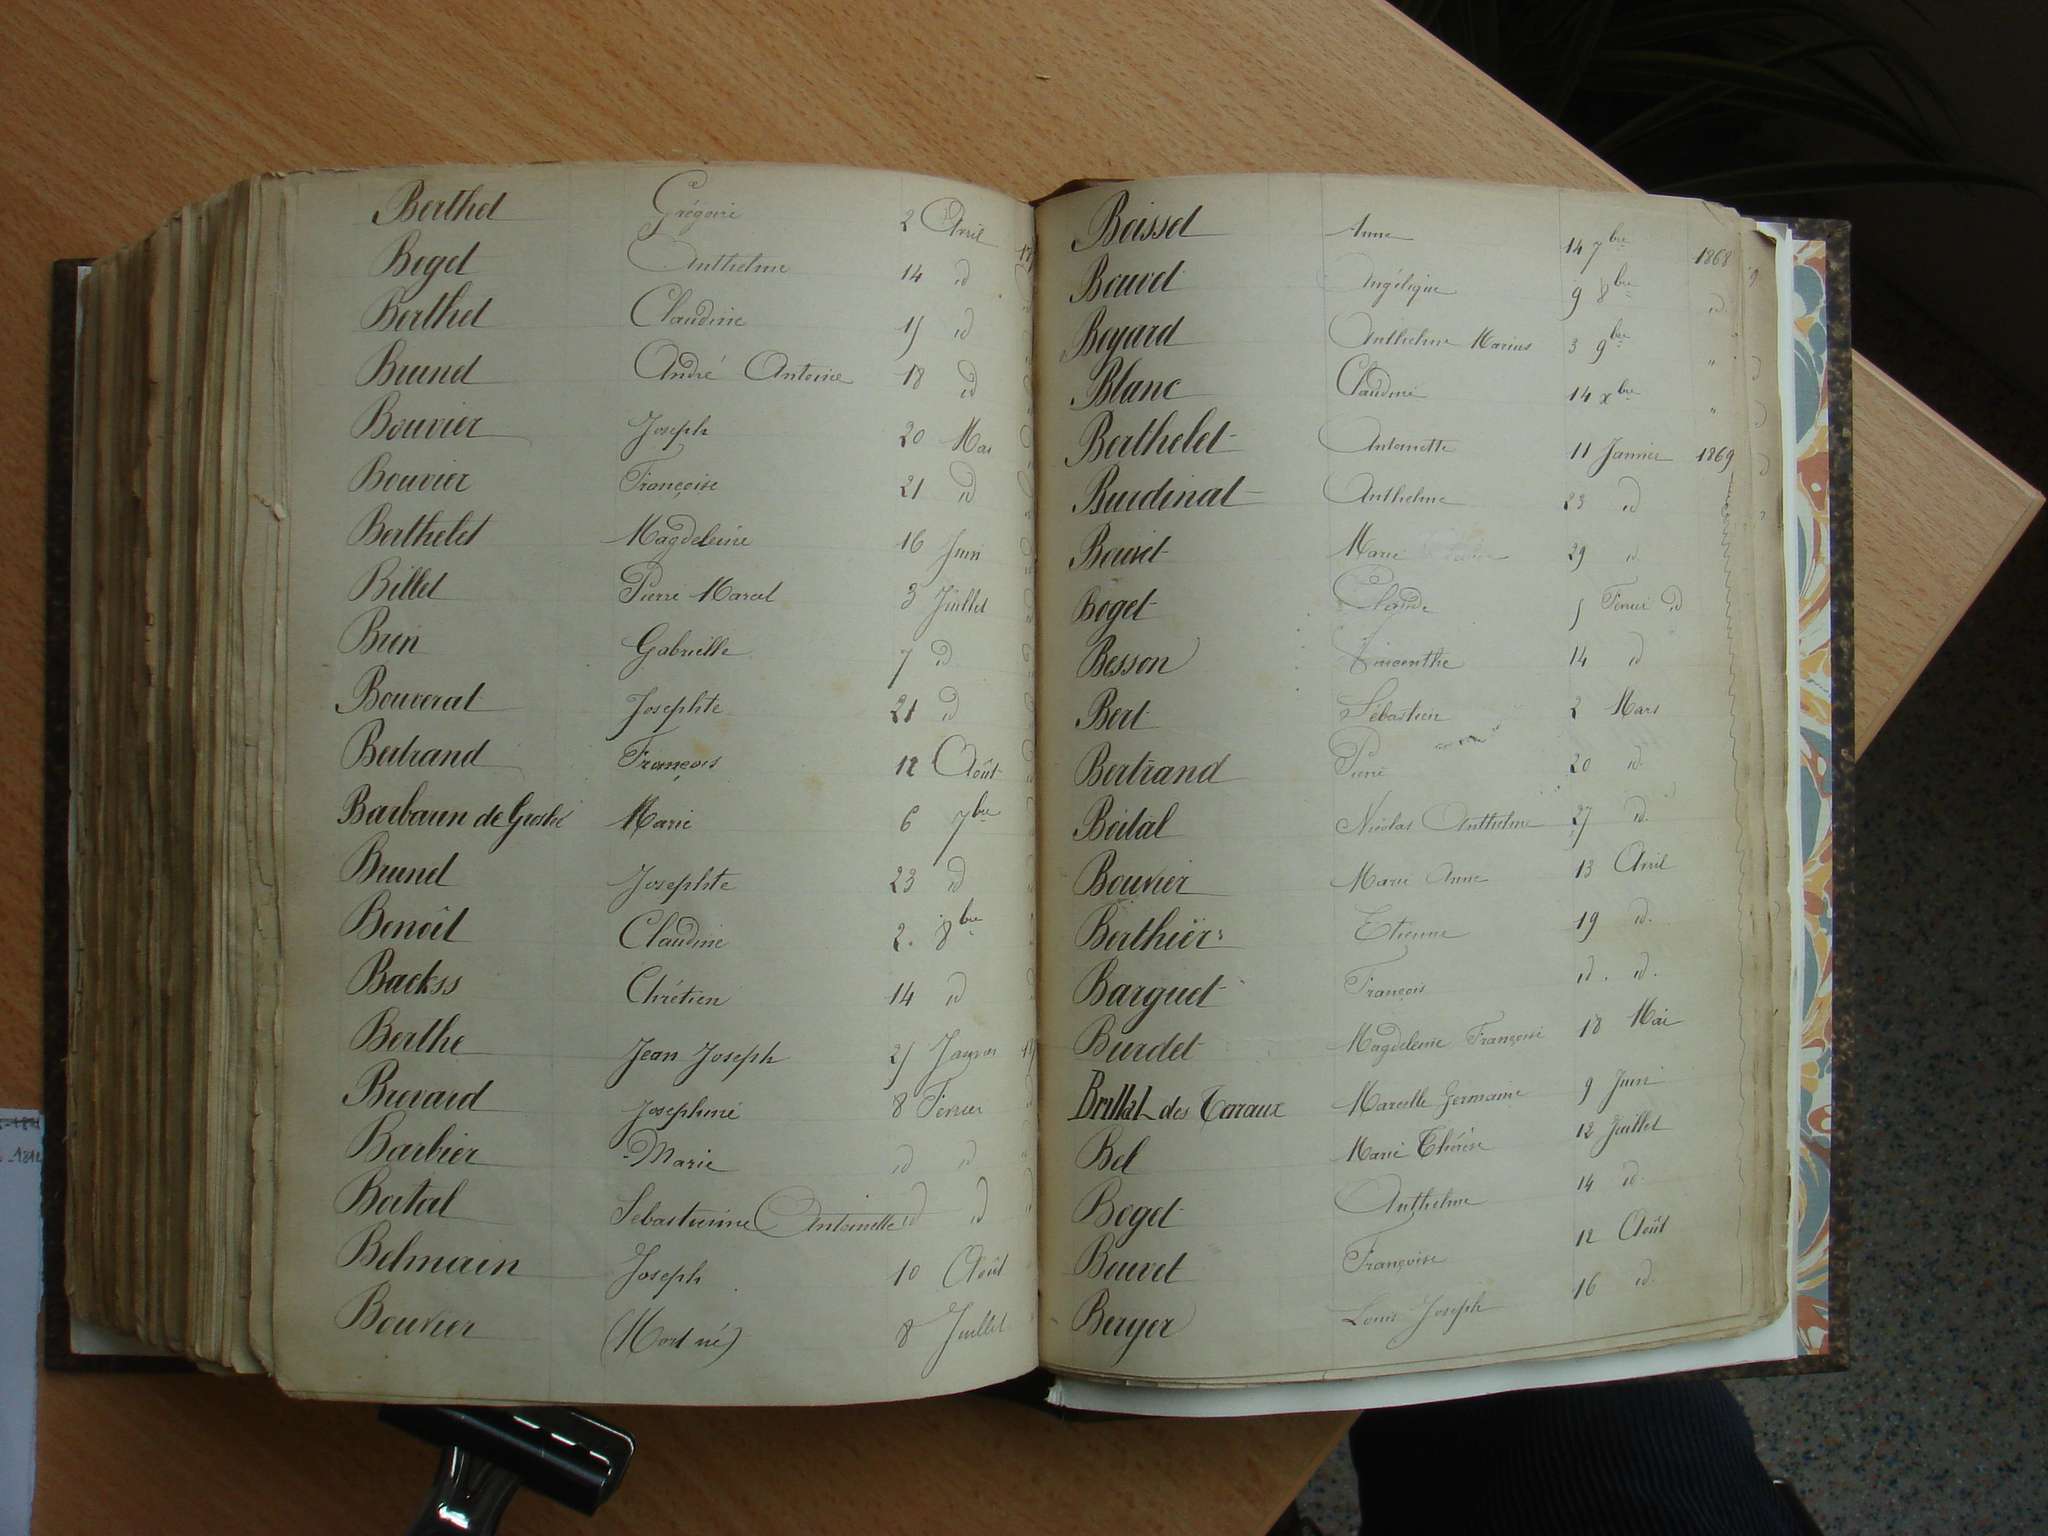 Berthet Grégoire 2 Avril
Boget Anthelme 14 id
Berthet Claudine 15 id
Brunet André Antoine 18 id
Bouvier Joseph 20 Mai
Bouvier Françoise 21 id
Berthelet Magdeleine 16 Juin
Billet Pierre Marcel 3 Juillet
Brun Gabrielle 7 id
Bouverat Josephte 21 id
Bertrand François 12 Août
Barbarin de Marie 6 7bre
Brunet Josephte 23 id
Benoît Claudine 2. 8bre
Backss Chrétien 14 id
Berthe Jean Joseph 25 Janvier
Buvard Josephine 8 Fevrier
Barbier Marie id id
Batal Sébastienne Antoinette id id
Belmain Joseph 10 Août
Bouvier (Mort né) 8 Juillet
Boisset Anne 14 7bre 1868
Bouvet Angélique 9 8bre id
Boyard Anthelme Marius 3 9bre "
Blanc Claudine 14 xbre "
Berthelet Antoinette 11 Janvier 1869
Burdinat Anthelme 23 id
Bouvet Marie 29 id
Boget Claude 5 Fevrier id
Besson Vincenthe 14 id
Bert Sébastien 2 Mars
Bertrand Pierre 20 id.
Boital Nicolas Anthelme 27 id.
Bouvier Marie Anne 13 Avril
Berthier Etienne 19 id.
Barquet François id. id.
Burdet Magdeleine Françoise 18 Mai
Brillat des Terreaux Marcelle Germaine 9 Juin
Bel Marie Thérèse 12 Juillet
Boget Anthelme 14 id.
Bouvet Françoise 12 Août
Berger Louis Joseph 16 id.